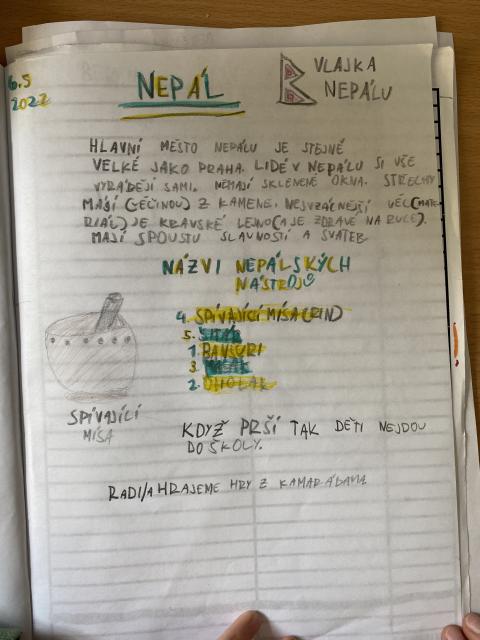 6.5
2022
NEPÁL
VLAJKA
NEPÁLU
HLAVNÍ MĚSTO NEPÁLU JE STEJNĚ
VELKÉ JAKO PRAHA. LIDÉ V NEPÁLU SI VŠE
VYRÁBĚJÍ SAMI. NEMAJÍ SKLENENÉ OKNA. STŘECHY
MAJÍ (VĚČINOU) Z KAMENE. NEJVZÁCNĚJŠÍ VĚC(MATE
RIÁL) JE KRAVSKÉ LEJNO(A JE ZDRAVÉ NA RUCE).
MAJÍ SPOUSTU SLAVNOSTÍ A SVATEB
NÁZVI NEPÁLSKÝCH
NÁSTROJŮ
4. SPÍVAJÍCÍ MÍSA(RIND)
5.
1. BANSURI
3.
2. DHOLAK
SPÍVAJÍCÍ
MÍSA
KDYŽ PRŠÍ TAK DĚTI NEJDOU
DO ŠKOLY.
RADI/A HRAJEME HRY Z KAMARÁDAMA